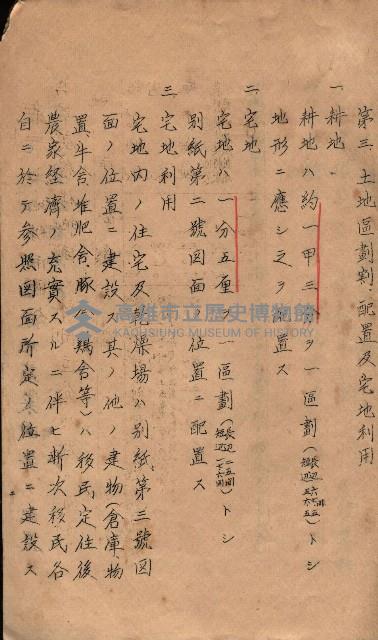 第三、土地區劃割、配置及宅地利用
一 耕地
耕地ハ約一甲三分ヲ一區劃(長辺 短辺)トシ
地形ニ應シ之ヲ配置ス
二 宅地
宅地ハ一分五厘一區劃(長辺 短辺)トシ
別紙第二號図面位置ニ配置ス
三 宅地利用
宅地内ノ住宅及乾燥場ハ別紙第三號図
面ノ位置ニ建設ス其ノ他ノ建物(倉庫、物
置、牛舎、堆肥舎、豚舎、鶏舎等)ハ移民定住後
農家経濟ノ充實スルニ伴ヒ漸次移民各
自ニ於テ参照図面所定ノ位置ニ建設ス
高雄市立歷史博物館
KAOHSIUNG MUSEUM OF HISTORY